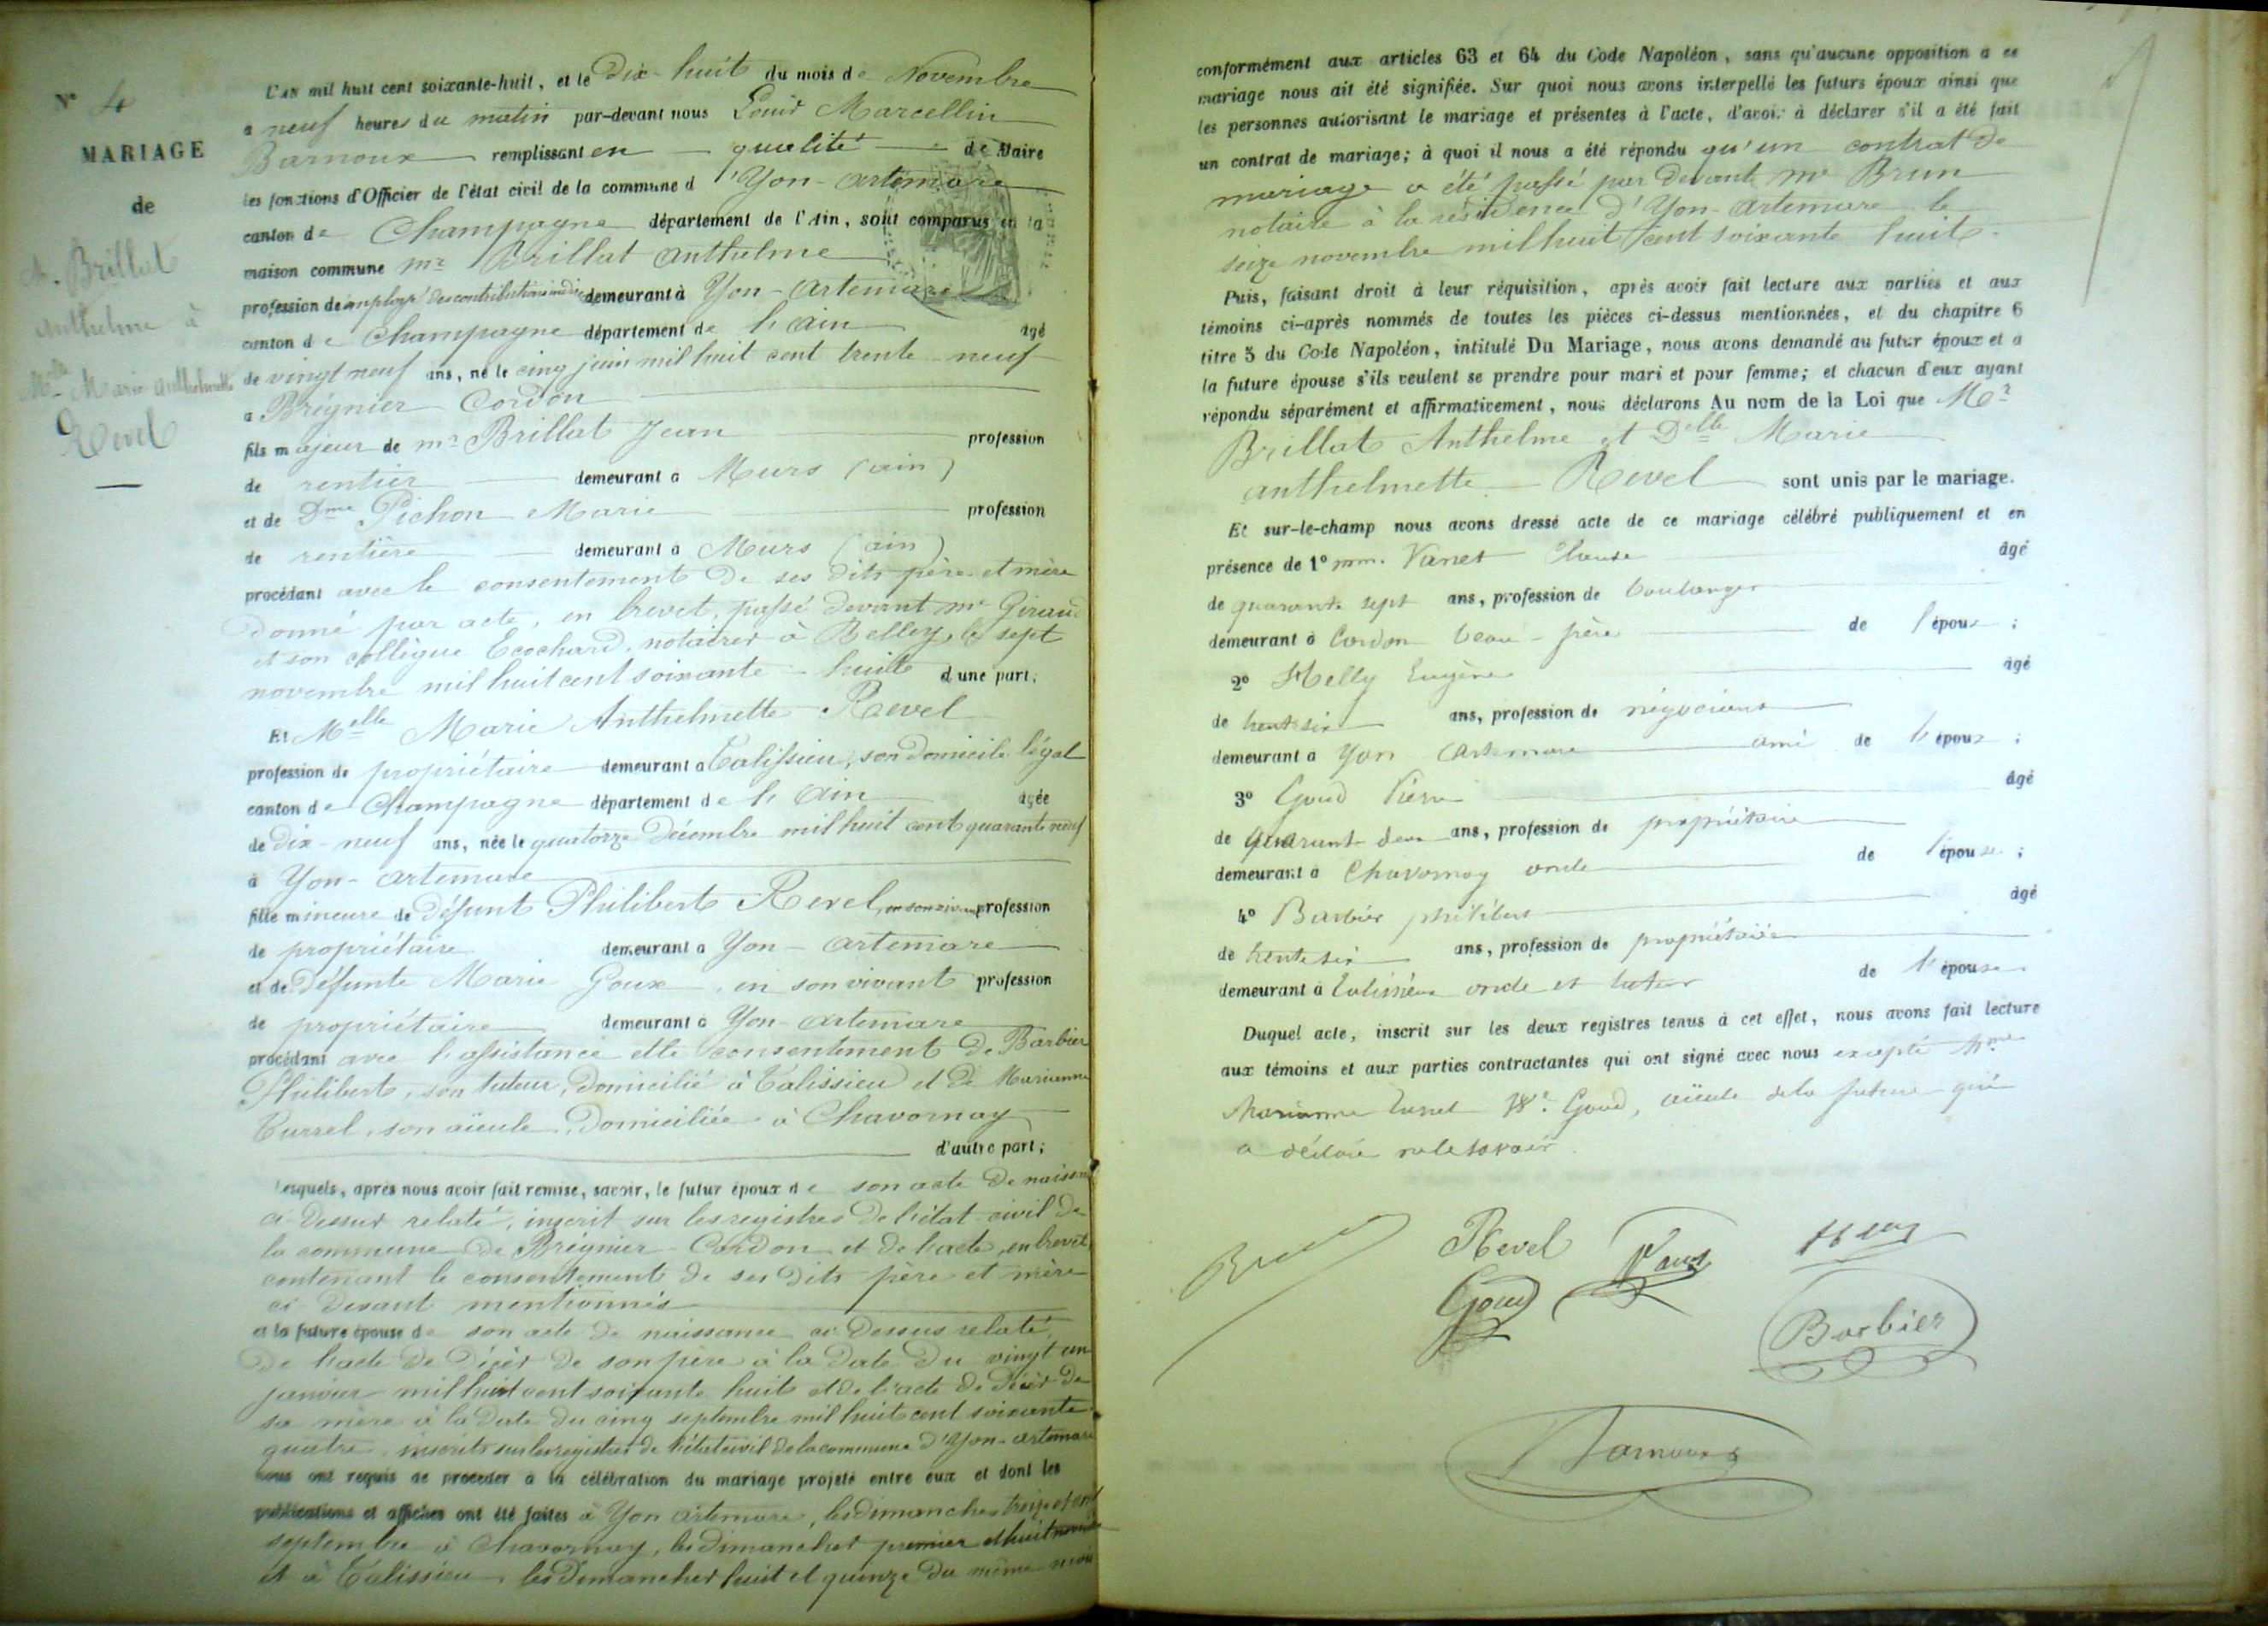 N° 4
MARIAGE
de
M. Brillat
Anthelme à
Melle Marie Anthelmette
Revel
L'AN mil huit cent soixante-huit, et le Dix-huit du mois de Novembre
a neuf heures du matin par-devant nous Louis Marcellin
Barnoux remplissant en qualité de Maire
les fonctions d'Officier de l'état civil de la commune d'Yon-Artemare
canton de Champagne département de l'Ain, sont comparus en la
maison commune Mr Brillat Anthelme
profession de employé des contributions indir. demeurant à Yon-Artemare
canton de Champagne département de l'ain âgé
de vingt neuf ans, né le cinq juin mil huit cent trente-neuf
a Brégnier Cordon
fils majeur de mr Brillat Jean profession
de rentier demeurant a Murs (ain)
et de Dme Pichon Marie profession
de rentière demeurant a Murs (ain)
procédant avec le consentement de ses dits père et mère
donné par acte, en brevet, passé devant me Giraud
et son collègue Ecochard, notaires à Belley, le sept
novembre mil huit cent soixante-huit d'une part;
Et Melle Marie Anthelmette Revel
profession de propriétaire demeurant a Talissieu, son domicile légal
canton de Champagne département de l'Ain âgée
de Dix-neuf ans, née le quatorze Décembre mil huit cent quarante neuf
à Yon-artemare
fille mineure de Défunt Philibert Revel, en son vivant profession
de propriétaire demeurant a Yon-artemare
et de Défunte Marie Goux, en son vivant profession
de propriétaire demeurant a Yon-artemare
procédant avec l'assistance et le consentement de Barbier
Philibert, son tuteur, domicilié à Talissieu et de Marianne
Turrel, son aïeule, Domiciliée à Chavornay
d'autre part;
Lesquels, après nous avoir fait remise, savoir, le futur époux de son acte de naissance
ci-dessus relaté, inscrit sur les registres de l'état-civil de
la commune de Brégnier-Cordon et de l'acte, en brevet,
contenant le consentement de ses dits père et mère
ci-devant mentionnés
et la future épouse de son acte de naissance ci-dessus relaté,
De l'acte de décès de son père à la date du vingt un
janvier mil huit cent soixante huit et de l'acte de décès de
sa mère à la date du cinq septembre mil huit cent soixante
quatre, inscrits sur les registres de l'état civil de la commune d'Yon-artemare
nous ont requis de procéder à la célébration du mariage projeté entre eux et dont les
publications et affiches ont été faites à Yon artemare, les dimanches treize et
septembre à Chavornay, les dimanches premier et huit novembre
et à Talissieu les dimanches huit et quinze du même mois
conformément aux articles 63 et 64 du Code Napoléon, sans qu'aucune opposition a ce
mariage nous ait été signifiée. Sur quoi nous avons interpellé les futurs époux ainsi que
les personnes autorisant le mariage et présentes à l'acte, d'avoir à déclarer s'il a été fait
un contrat de mariage; à quoi il nous a été répondu qu'un contrat de
mariage a été passé par devant me Brun
notaire à la résidence d'Yon-Artemare le
seize novembre mil huit cent soixante huit.
Puis, faisant droit à leur réquisition, après avoir fait lecture aux parties et aux
témoins ci-après nommés de toutes les pièces ci-dessus mentionnées, et du chapitre 6
titre 5 du Code Napoléon, intitulé Du Mariage, nous avons demandé au futur époux et a
la future épouse s'ils veulent se prendre pour mari et pour femme; et chacun d'eux ayant
répondu séparément et affirmativement, nous déclarons Au nom de la Loi que Mr
Brillat Anthelme et Delle Marie
anthelmette Revel sont unis par le mariage.
Et sur-le-champ nous avons dressé acte de ce mariage célébré publiquement et en
présence de 1° mm. Vanet Claude âgé
de quarante sept ans, profession de boulanger
demeurant à Cordon beau-frère de l'époux;
2° Helly Eugène âgé
de trente six ans, profession de négociant
demeurant a Yon Artemare ami de l'époux;
3° Goud Pierre âgé
de quarante deux ans, profession de propriétaire
demeurant a Chavornay oncle de l'épouse;
4° Barbier philibert âgé
de trente six ans, profession de propriétaire
demeurant à Talissieu oncle et tuteur de l'épouse
Duquel acte, inscrit sur les deux registres tenus à cet effet, nous avons fait lecture
aux témoins et aux parties contractantes qui ont signé avec nous excepté Mme
Marianne Turrel Ve Goud, aïeule de la future qui
a déclaré ne le savoir.
Revel
Goud
Barbier
Barnoux